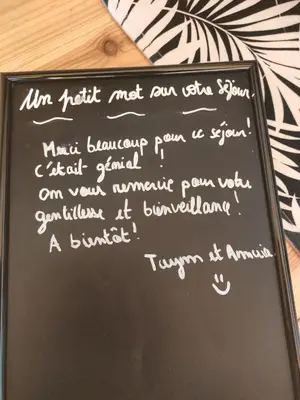 Un petit mot sur votre Séjour.
Merci beaucoup pour ce séjour!
C'était génial !
On vous remercie pour votre
gentillesse et bienveillance!
A bientôt!
et